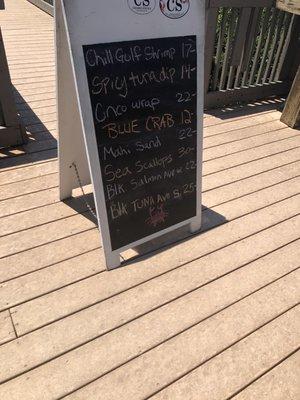 CS CS
Chill Golf Shrimp 17-
Spicy tuna dip 14-
Cnco wrap 22-
BLUE CRAB 12-
Mahi Sand 22-
Sea Scallops 30-
Blk Salmon Ave 22-
Blk TUNA Avo S 25-